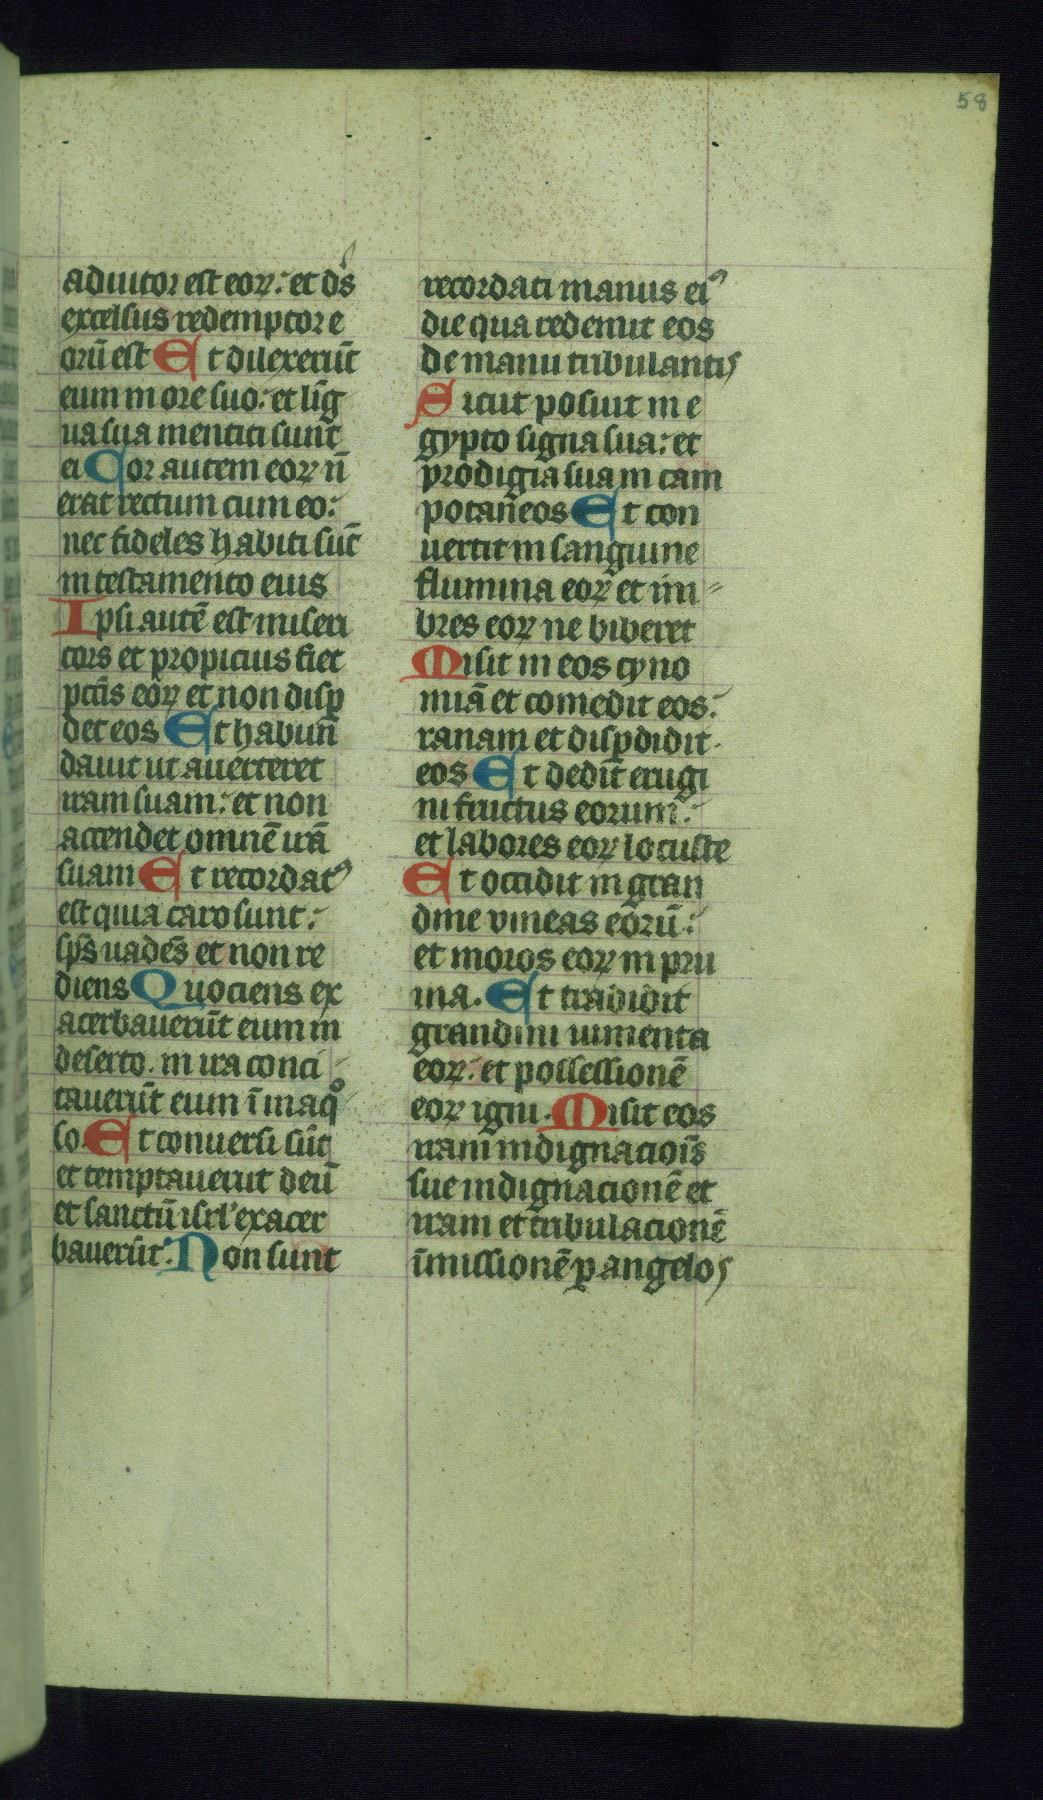 58
adiutor est eoꝝ: et dn̄s
excelsus redemptor e
orū est Et dilexerūt
eum in ore suo: et līg
ua sua mentiti sunt
ei Cor autem eoꝝ nō
erat rectum cum eo:
nec fideles habiti sūt
in testamento eius
Ipsi autē est miseri
cors et propicius fiet
pctīs eoꝝ et non disꝑ
det eos Et habun
dauit ut auerteret
iram suam: et non
accendet omnē irā
suam Et recordatꝰ
est quia caro sunt:
sps̄ uadēs et non re
diens Quociens ex
acerbauerūt eum in
deserto. in ira conci
tauerūt eum ī inaqͦ
so. Et conuersi sūt
et temptauerut deū
et sanctū isrl' exacer
bauerūt: Non sunt
recordati manus eiꝰ
die qua redemit eos
de manu tribulantis
Sicut posuit in e
gypto signa sua: et
prodigia sua in cam
po taneos Et con
uertit in sanguine
flumina eoꝝ et im
bres eoꝝ ne biberet
Misit in eos cyno
miā et comedit eos:
ranam et disꝑdidit
eos Et dedit erugi
ni fructus eorum:
et labores eoꝝ locuste
Et occidit in gran
dine vineas eorū:
et moros eoꝝ in prui
ina. Et tradidit
grandini iumenta
eoꝝ: et possessionē
eoꝝ igni. Misit eos
iram indignaciois̄
sue indignacionē et
iram et tribulacionē
īmissionē ꝑ angelos